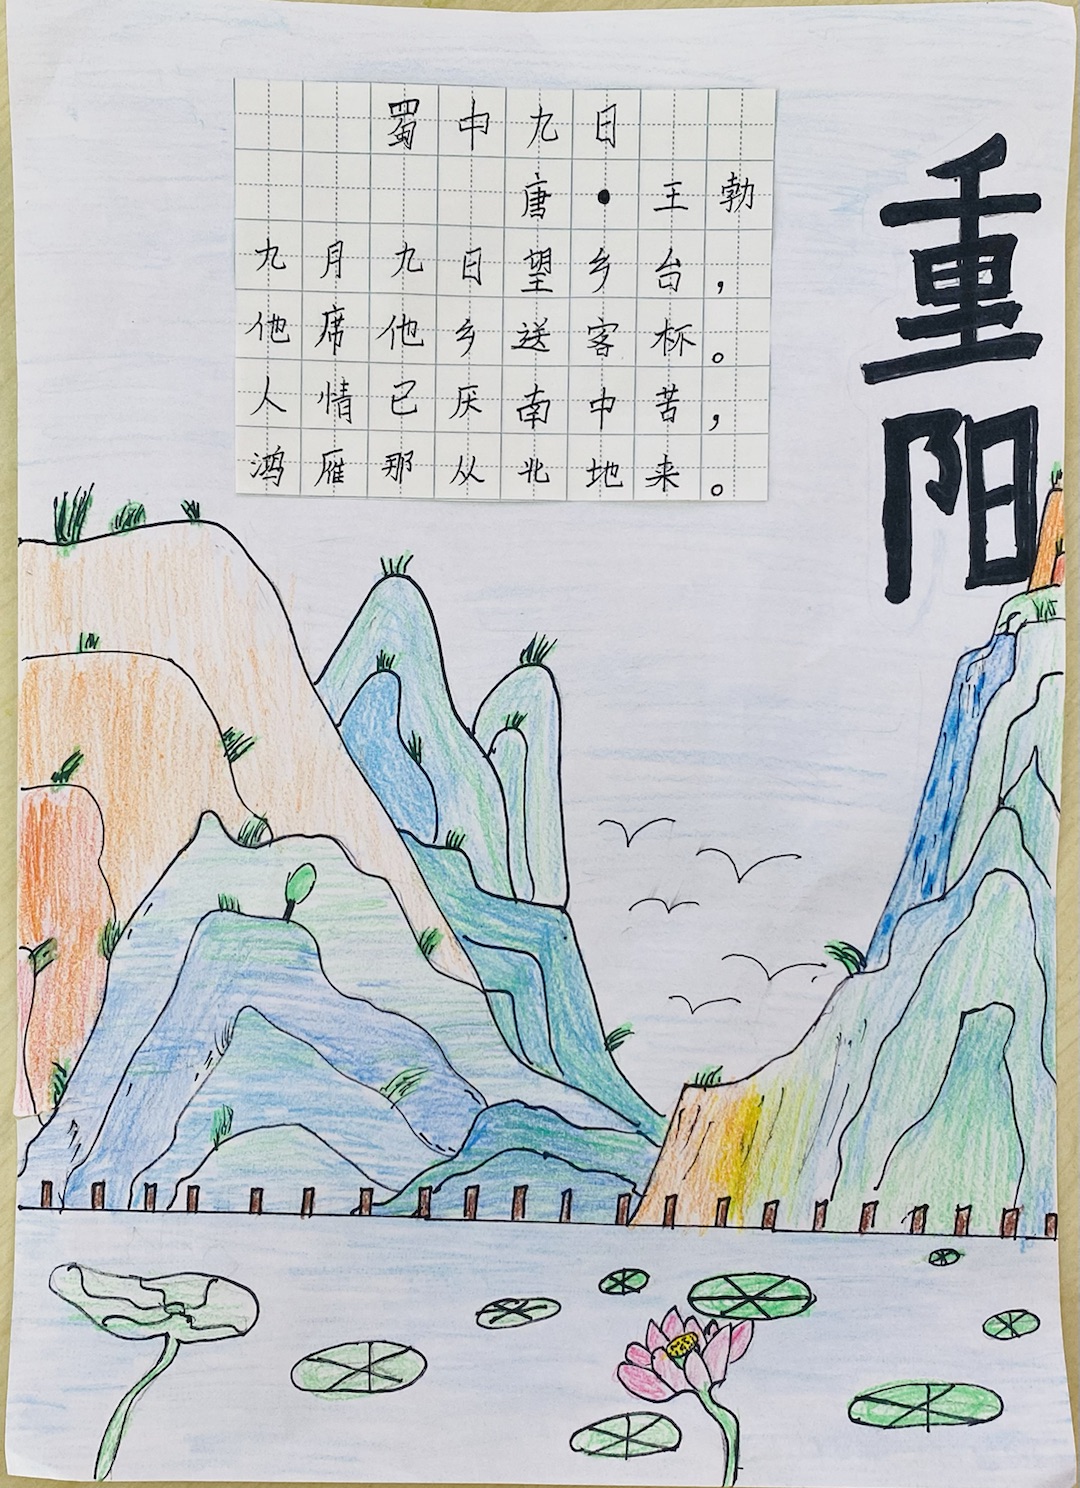 重阳
蜀中九日
唐•王勃
九月九日望乡台，
他席他乡送客杯。
人情已厌南中苦，
鸿雁那从北地来。